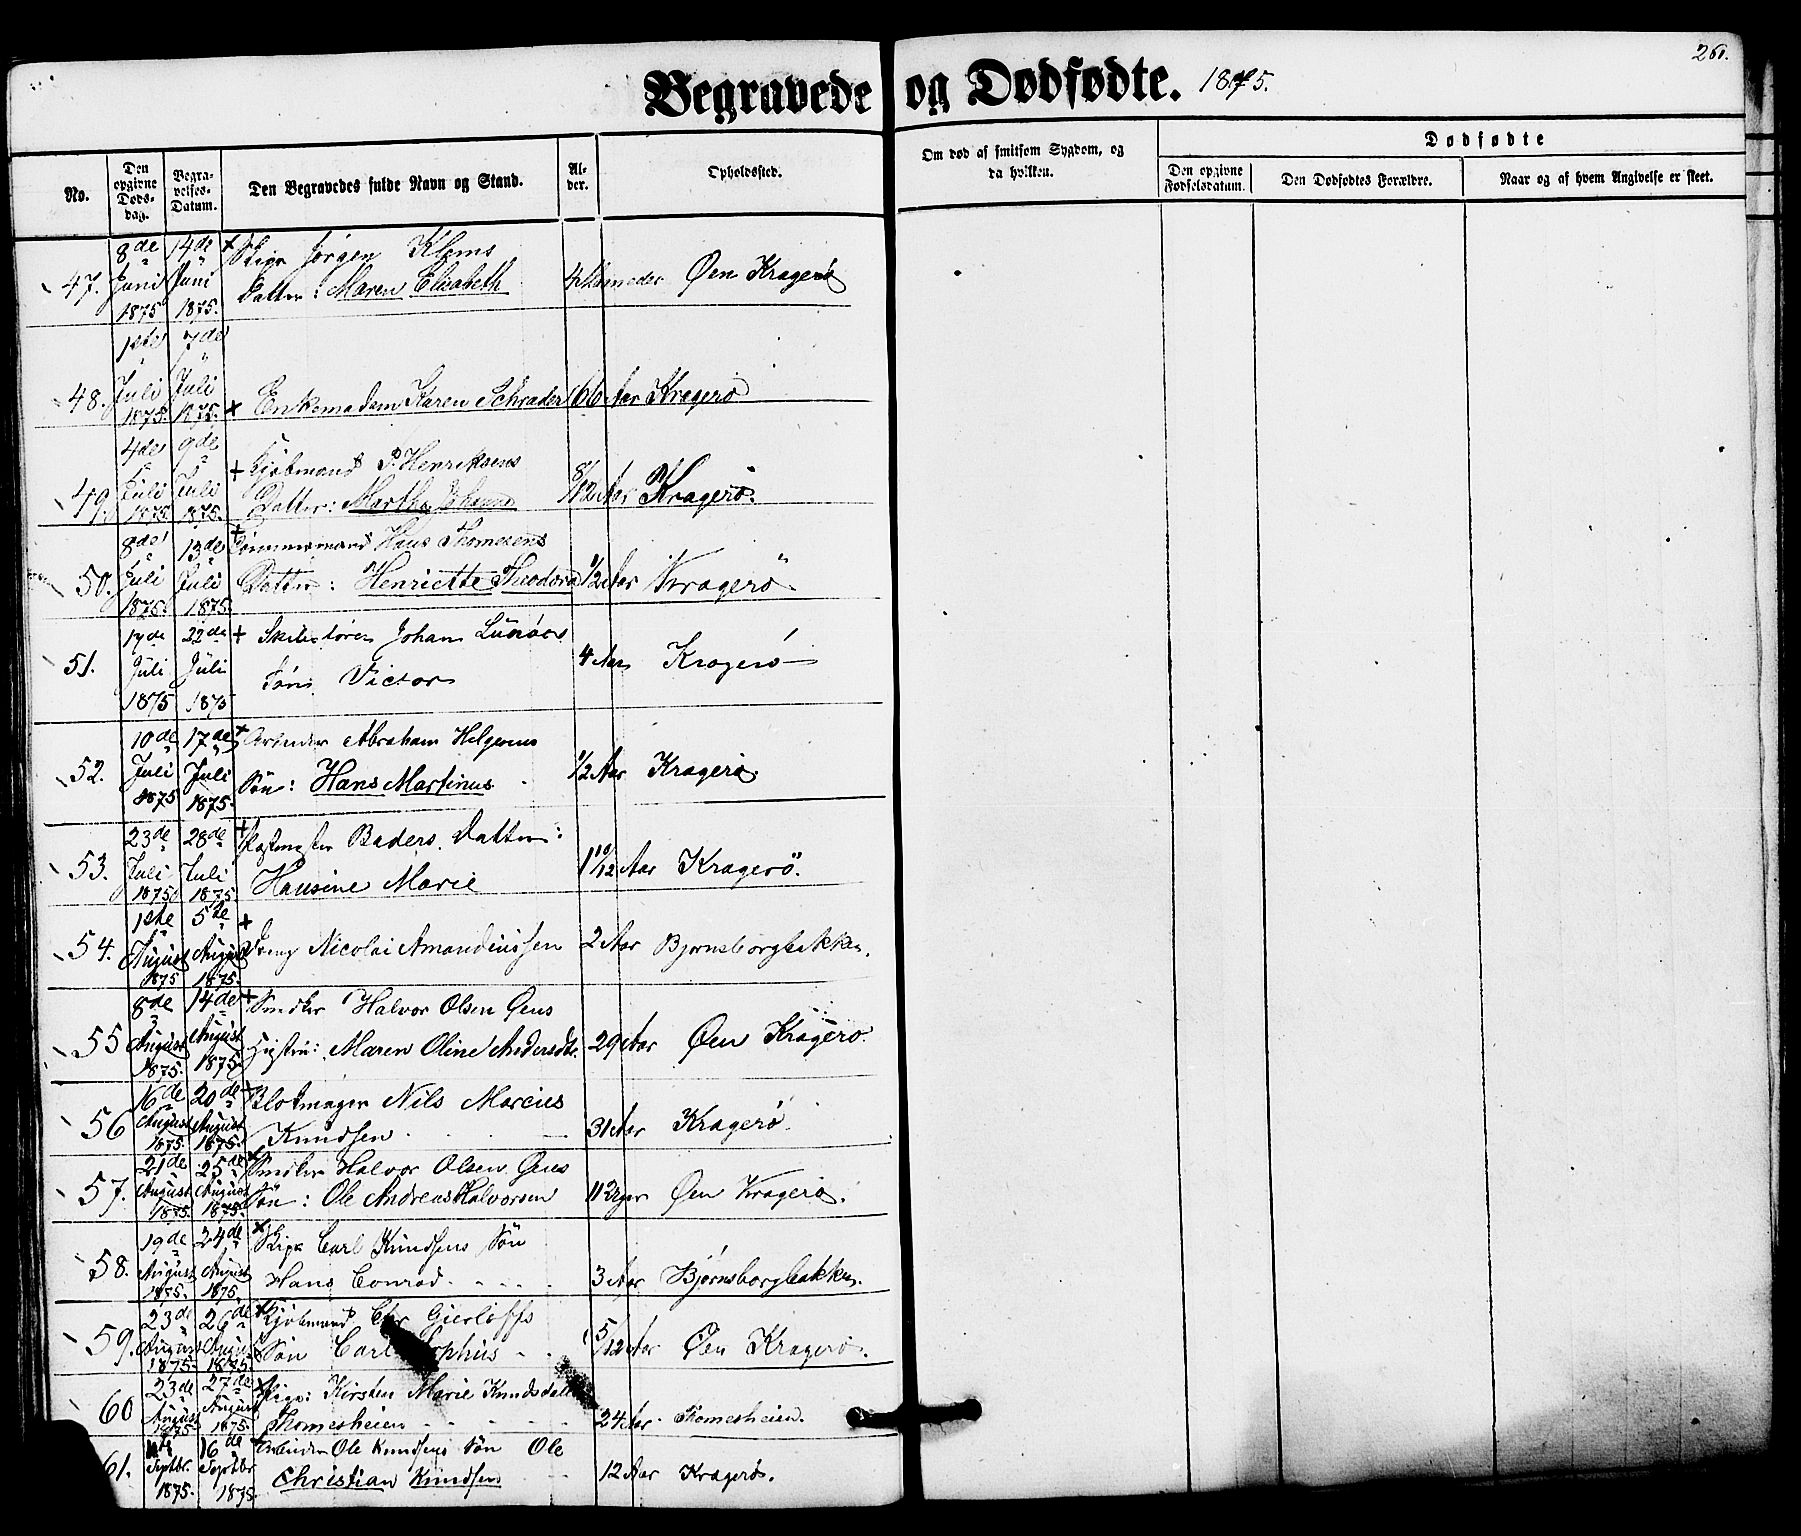 Begravede og Dødfødte. 1875.
260.
No.
Den opgivne Døds-dag.
Begra-velses-Datum.
Den Begravedes fulde Navn og Stand.
Al-der.
Opholdssted.
Om død af smitsom Sygdom, og da hvilken.
Dødfødte
Den opgivne Fødselsdatum.
Den Dødfødtes Forældre.
Naar og af hvem Angivelse er skeet.
47. 8de Juni 1875 14de Juni 1875. + Jørgen Klems
Datter: Maren Elisabeth Øen Kragerø
48. 1ste Juli 1875. 7de Juli 1875. + Enkemadam Karen Schrader 66 Aar Kragerø
49. 4de Juli 1875. 9de Juli 1875. + Kjøbmand P. Henriksens
Datter: Martha Johanne 8/12 Aar Kragerø.
50. 8de Juli 1875. 13de Juli 1875. + Tømmermand Hans Thomesens
Datter: Henriette Theodora 1/2 Aar Kragerø.
51. 17de Juli 1875 22de Juli 1875 + Johan
Søn Victor 4 Aar Kragerø
52. 10de Juli 1875 17de Juli 1875. + Arbeider Abraham Helgesens
Søn: Hans Martinus. 1/2 Aar Kragerø.
53. 23de Juli 1875 28de Juli 1875. + Postmester Baders Datter:
Hansine Marie 1 10/12 Aar Kragerø.
54. 1ste August 1875 5te August 1875. +
Dreng Nicolai Amandinssen 2 Aar Bjørnsborgbakken.
55 8de August 1875. 14de August 1875. + Snedker Halvor Olsen Øens
Hustru: Maren Oline Andersdtr. 29 Aar Øen Kragerø.
56 16de August 1875. 20de August 1875. + Blokmager Nils Marcus
Knudsen 31 Aar Kragerø.
57. 21de August 1875. 25de August 1875. + Snedker Halvor Olsen Øens
Søn: Ole Andreas Halvorsen 11 Uger Øen Kragerø.
58. 19de August 1875. 24de August 1875. + Carl Knudsens Søn
Hans Conrad. 3 Aar Bjørnsborgbakken.
59. 23de August 1875. 26de August 1875. + Kjøbmand Chr Gierløffs
Søn Carl 5/12 Aar Øen Kragerø.
60 23de August 1875 27de August 1875. + Pige: Kirsten Marie Knudsdatter
Thomesheien 24 Aar. Thomesheien.
61. Septbr. 1875. 16de Septbr 1875. + Arbeider Ole Knudsens Søn Ole
Christian Knudsen 12 Aar Kragerø.